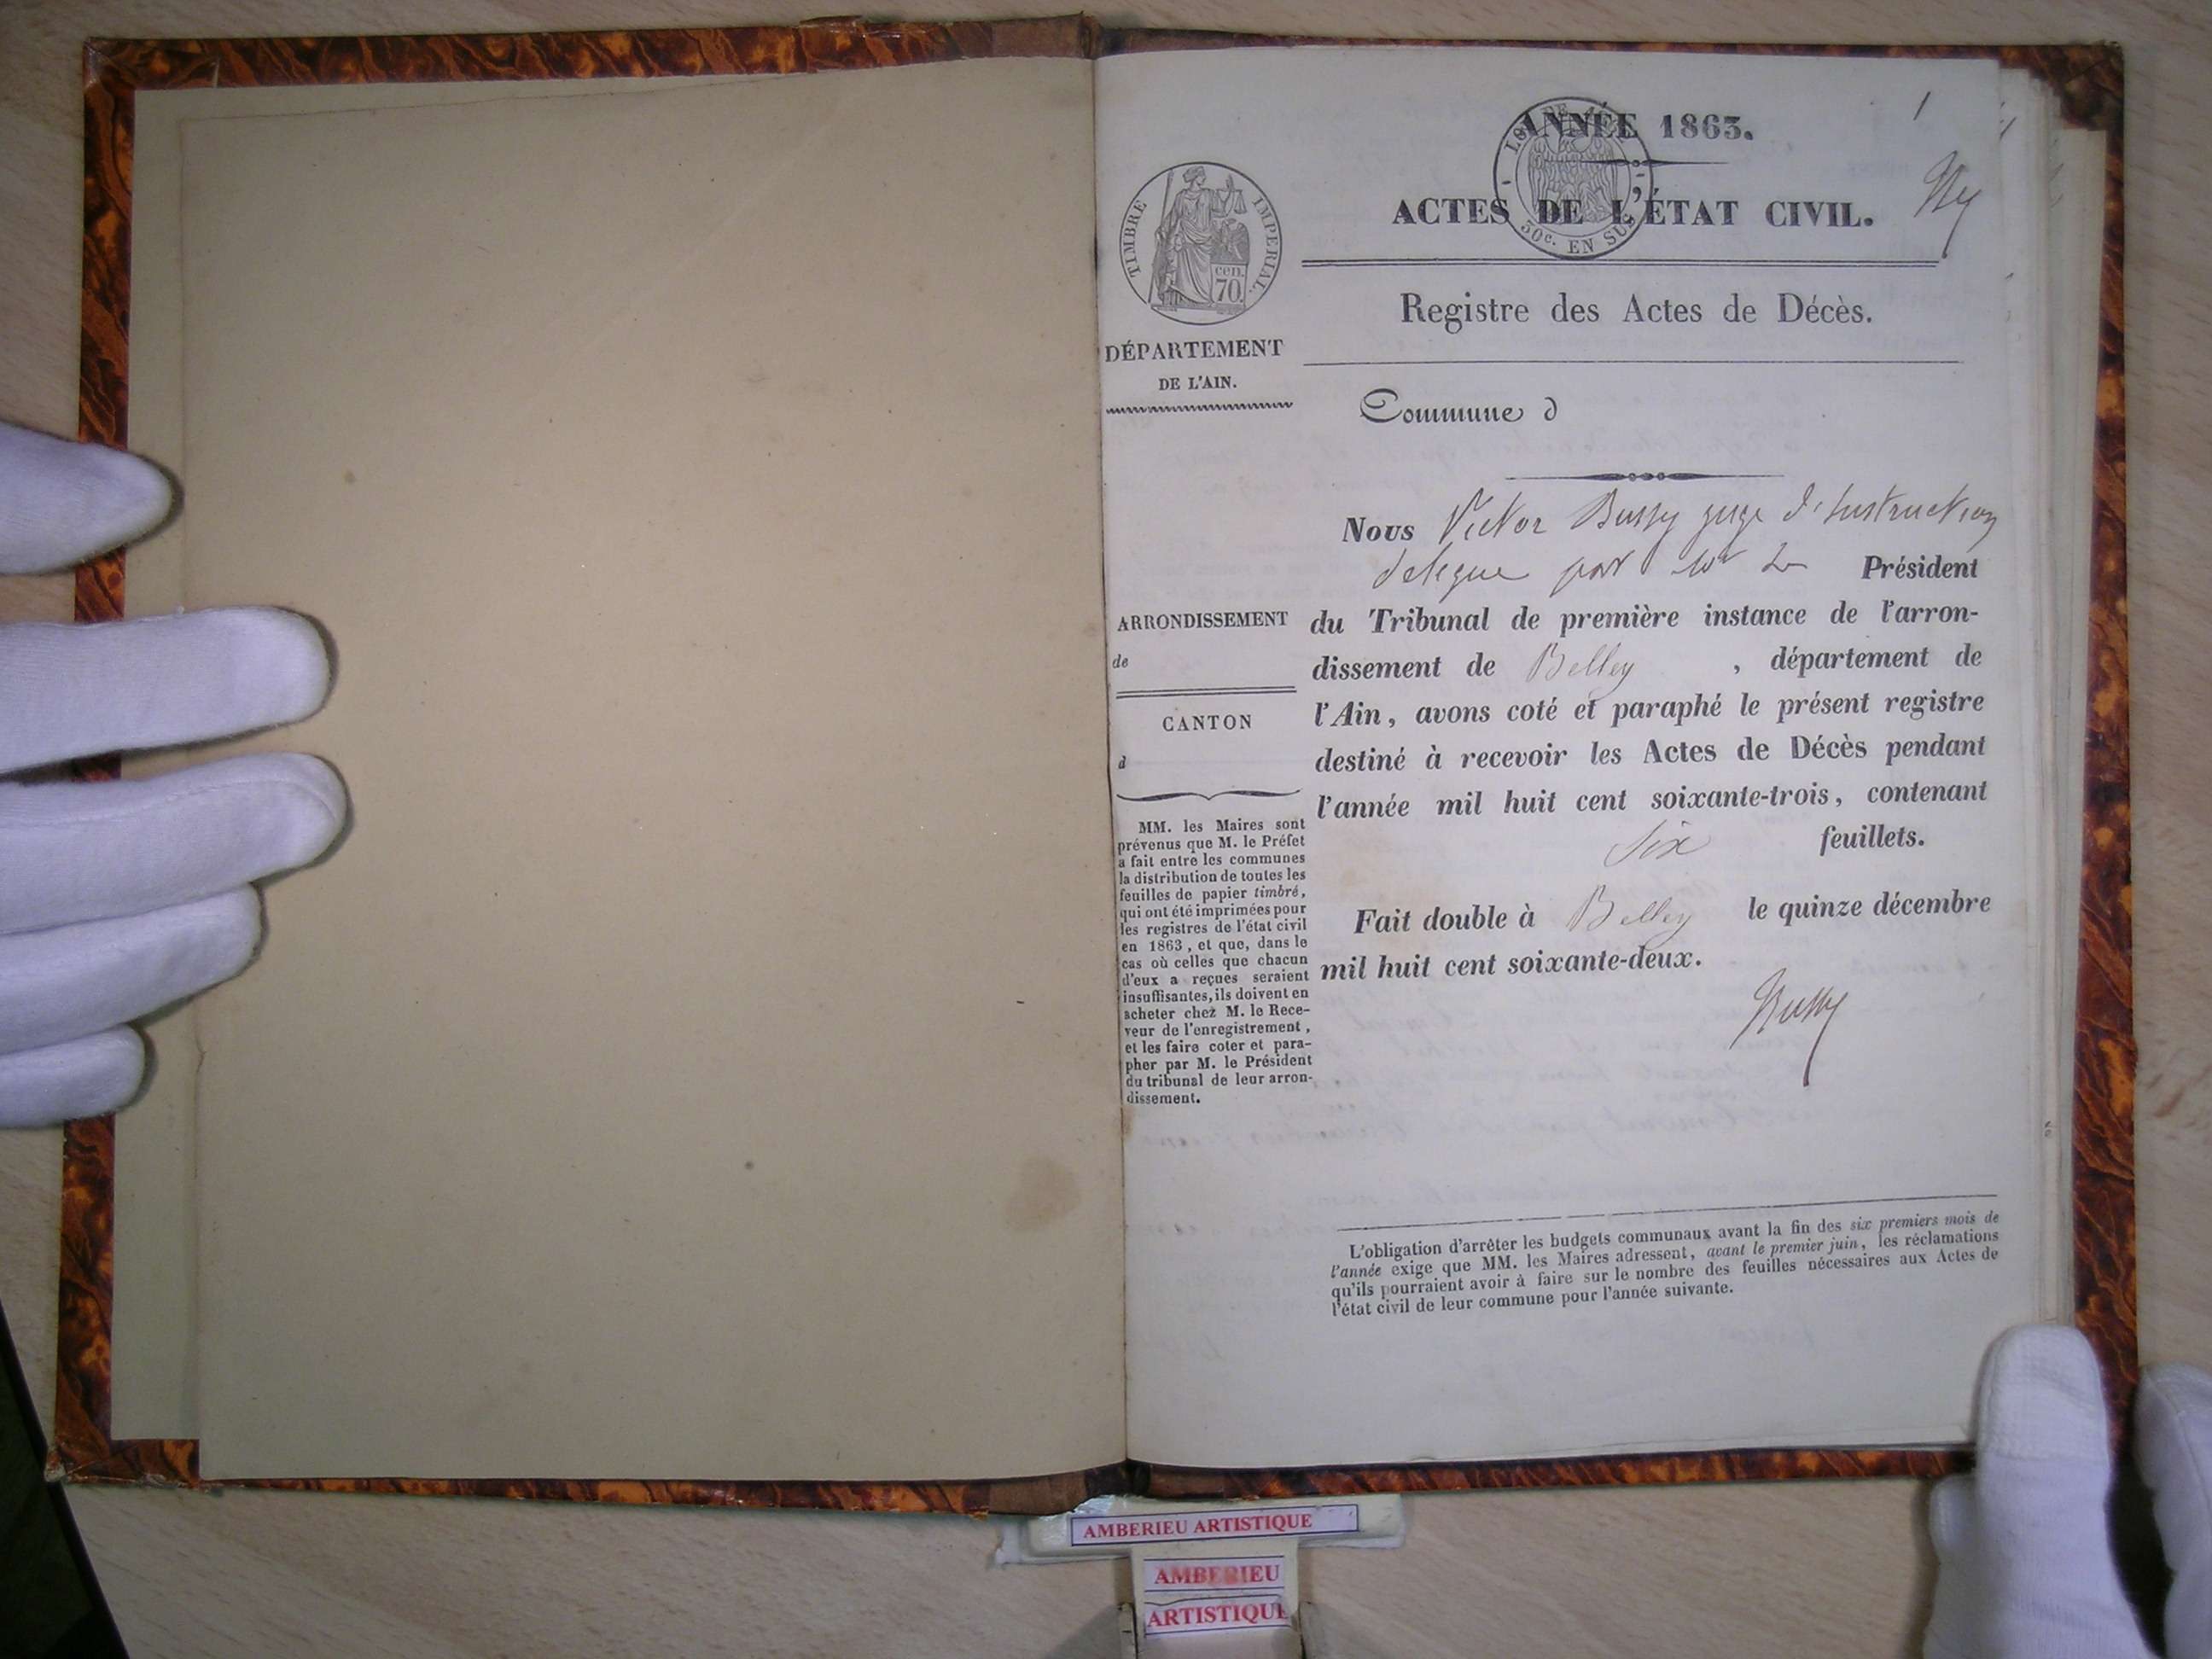 1
ANNÉE 1863.
LOI DE
30c. EN SUS
ACTES DE L'ÉTAT CIVIL.
TIMBRE IMPERIAL.
cen.
70.
Registre des Actes de Décès.
DÉPARTEMENT
DE L'AIN.
Commune d
Nous Victor Bussy juge d'instruction
delegue par Mr Le Président
du Tribunal de première instance de l'arron-
dissement de Belley , département de
l'Ain, avons coté et paraphé le présent registre
destiné à recevoir les Actes de Décès pendant
l'année mil huit cent soixante-trois, contenant
six feuillets.
Fait double à Belley le quinze décembre
mil huit cent soixante-deux.
Bussy
ARRONDISSEMENT
de
CANTON
d
MM. les Maires sont
prévenus que M. le Préfet
a fait entre les communes
la distribution de toutes les
feuilles de papier timbré,
qui ont été imprimées pour
les registres de l'état civil
en 1863, et que, dans le
cas où celles que chacun
d'eux a reçues seraient
insuffisantes, ils doivent en
acheter chez M. le Rece-
veur de l'enregistrement,
et les faire coter et para-
pher par M. le Président
du tribunal de leur arron-
dissement.
L'obligation d'arrêter les budgets communaux avant la fin des six premiers mois de
l'année exige que MM. les Maires adressent, avant le premier juin, les réclamations
qu'ils pourraient avoir à faire sur le nombre des feuilles nécessaires aux Actes de
l'état civil de leur commune pour l'année suivante.
AMBERIEU ARTISTIQUE
AMBERIEU
ARTISTIQUE